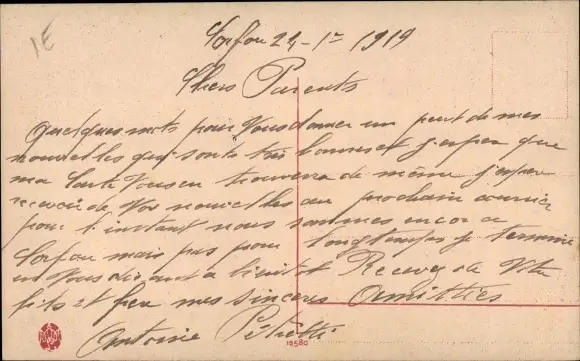 1E
Corfou 24-1er 1919
Chers Parents
Quelques mots pour Vous donner un peut de mes
nouvelles qui sonts très bonnes et j'esper que
ma Carte Vous en trouvera de même j'esper
recevoir de Vos nouvelles au prochain courrier
pour l'instant nous sommes encor a
Corfou mais pas pour longtemps je termine
en Vous disant a bientot Recevez de Votre
fils et frer mes sinceres Amittiés
Antoine Pietretti
12580